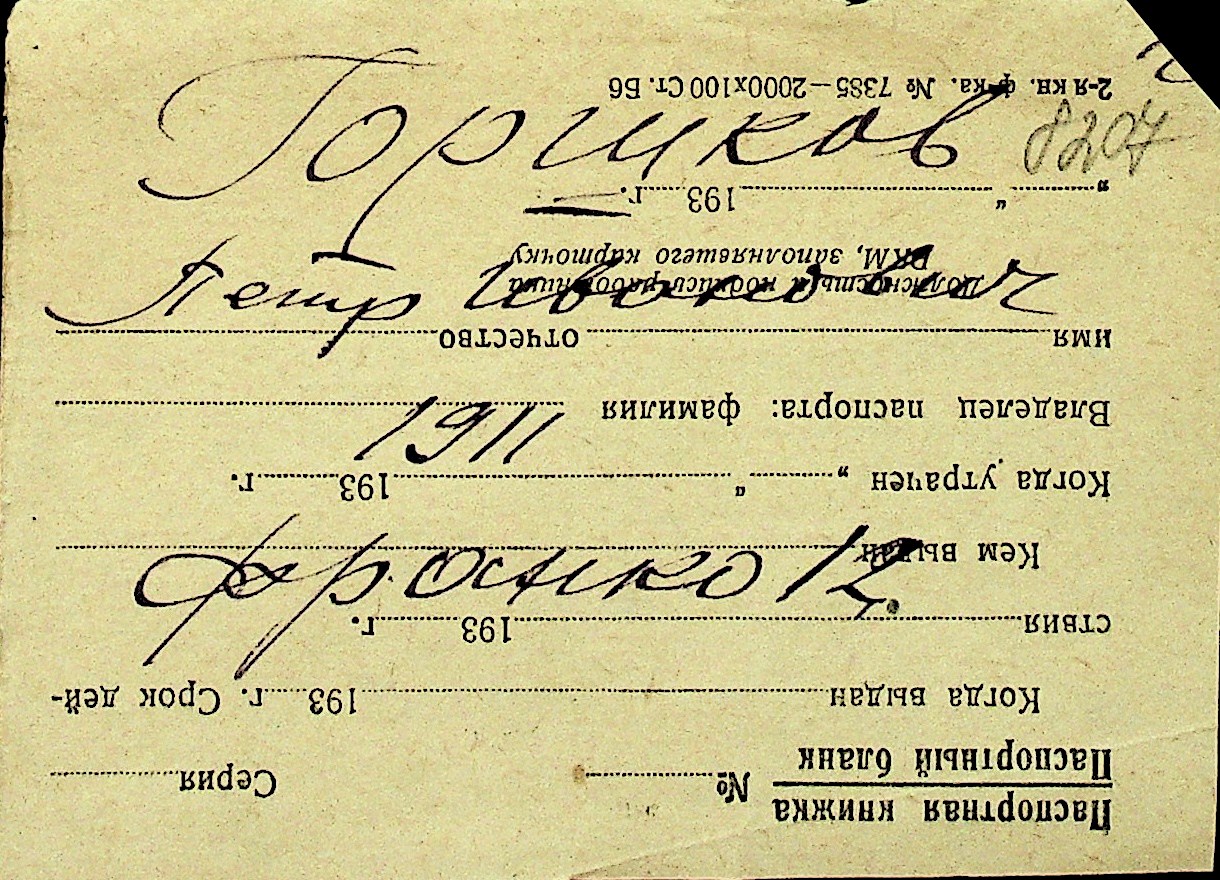 Горшков
8207
Петр Иванович
1911
Франко 12
Паспортная книжка
Паспортный бланк № Серия
Когда выдан 193 г. Срок дей-
ствия 193 г.
Кем выдан
Когда утрачен „ “ 193 г.
Владелец паспорта: фамилия
имя отчество
Должность и подпись работника
РКМ, заполнявшего карточку
„ “ 193 г.
2-я кв. ф-ка. № 7385—2000х100 Ст. Б6